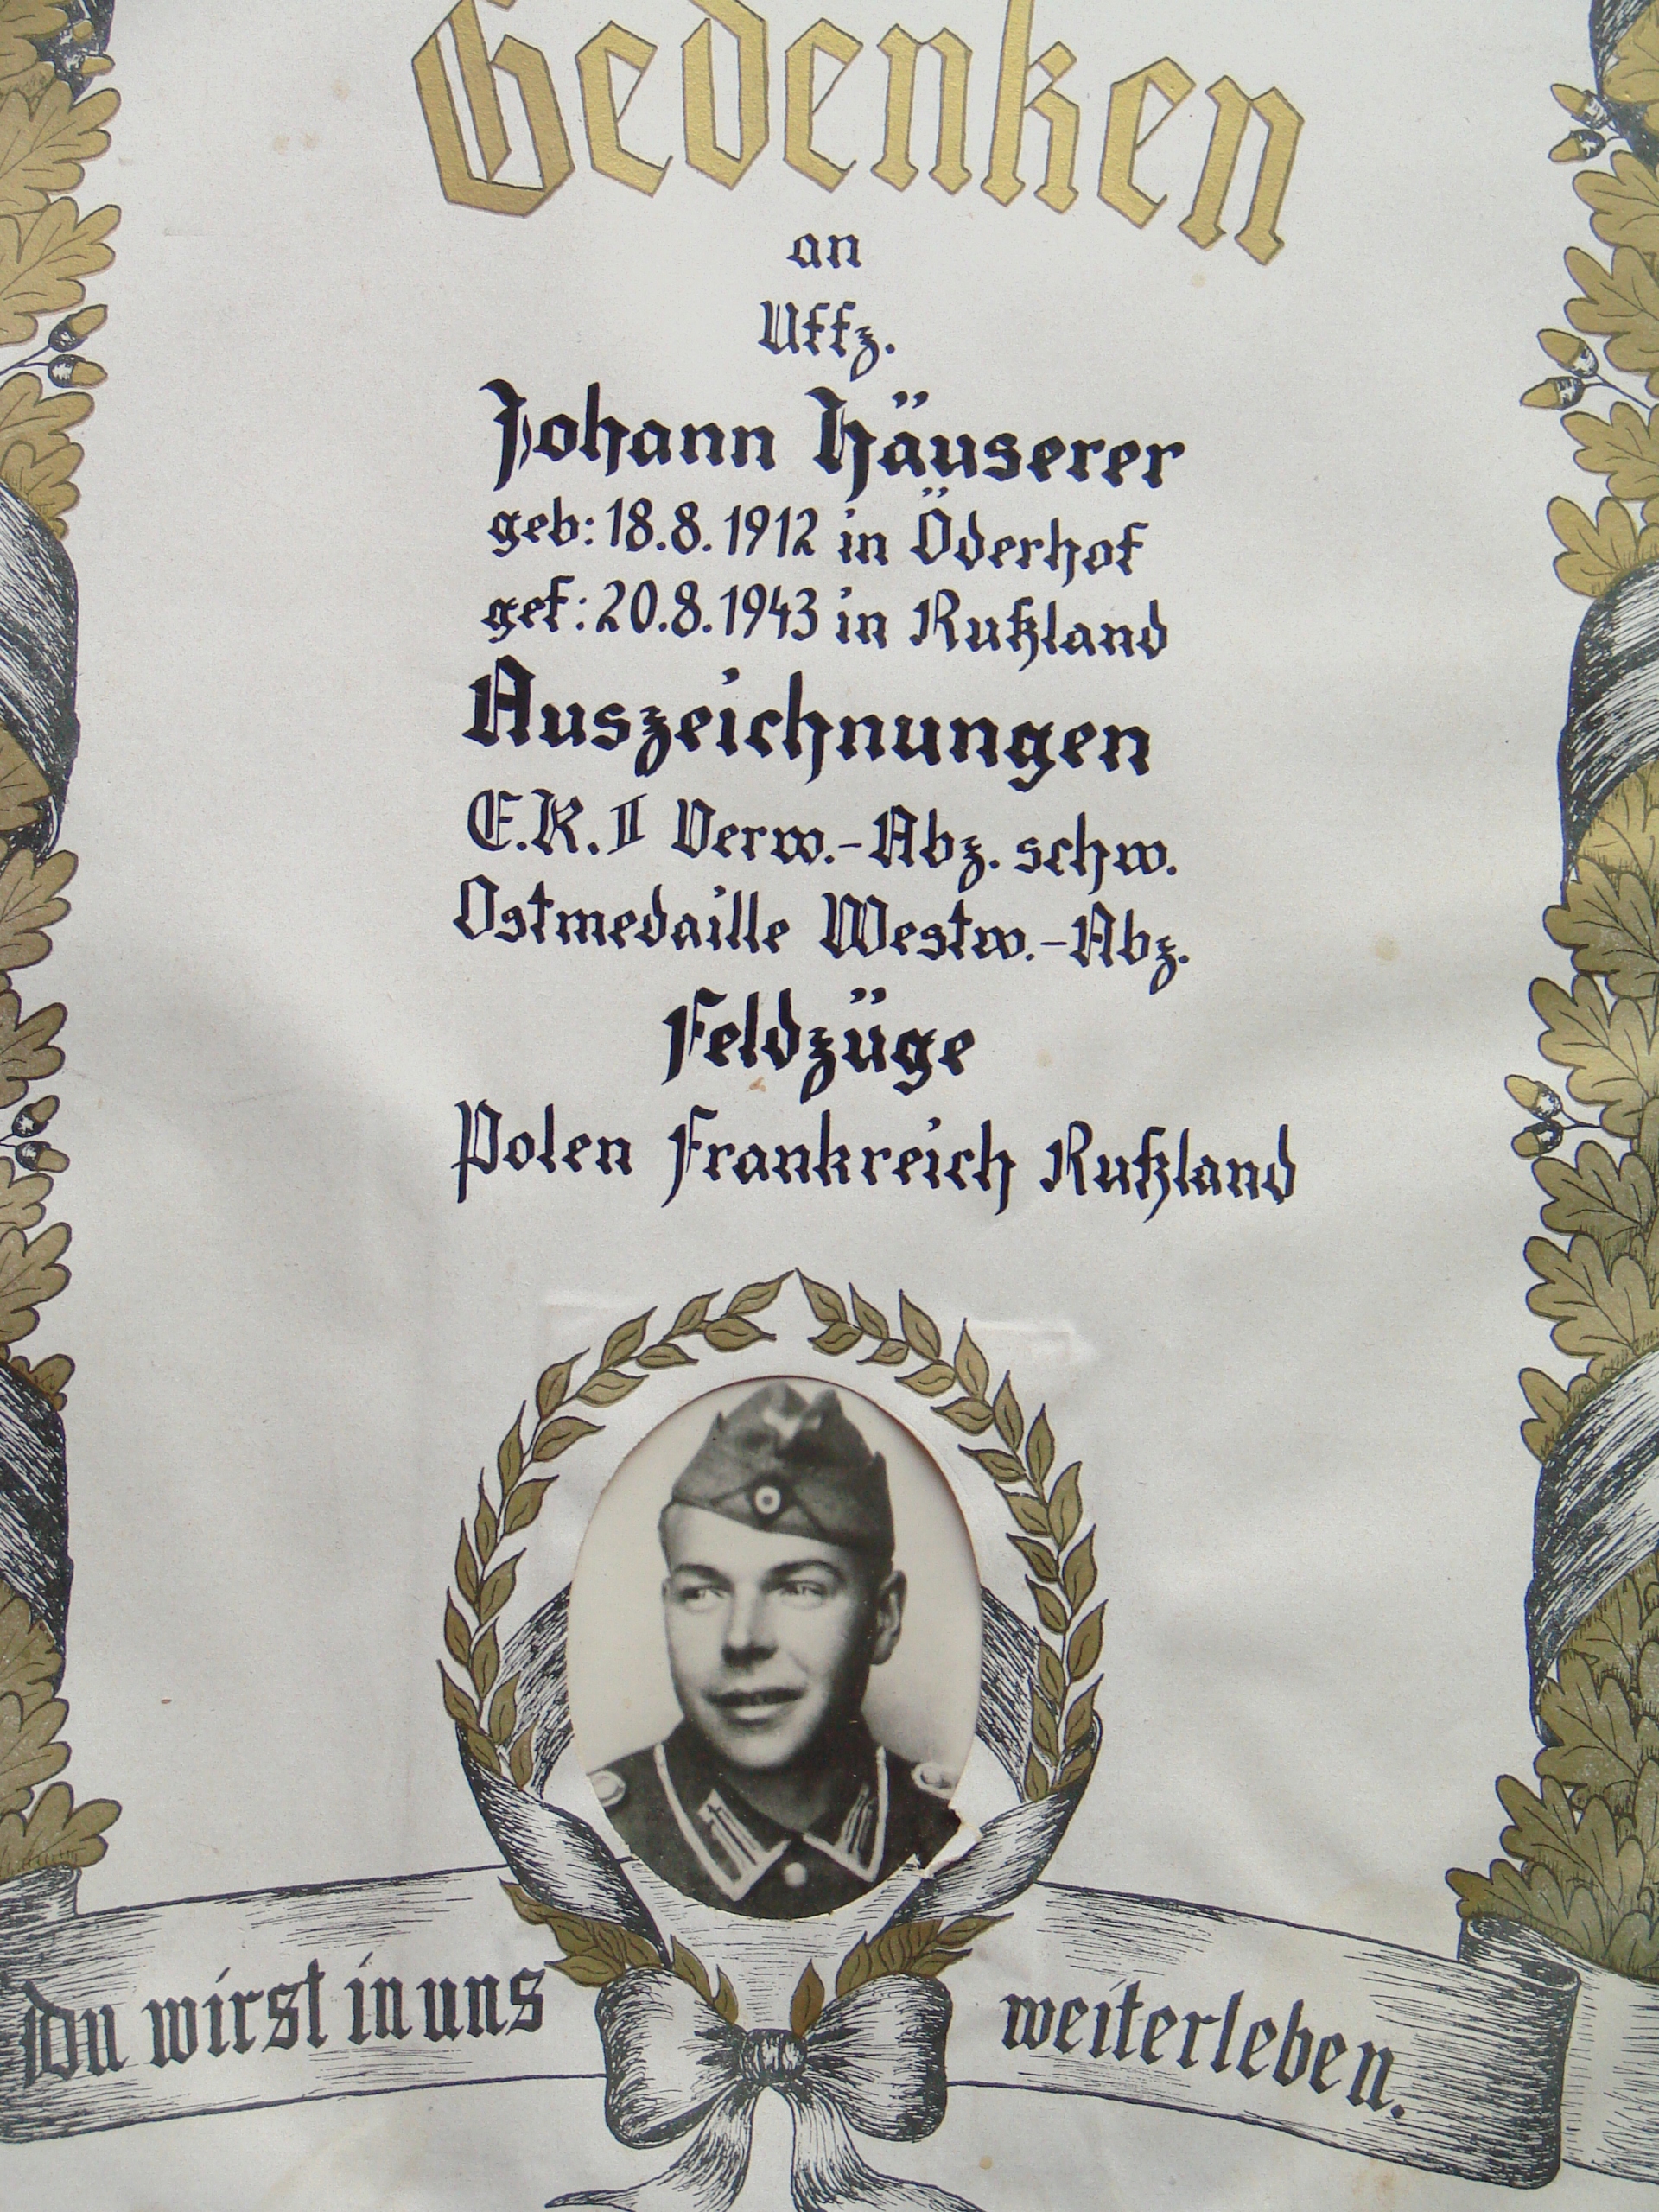 Gedenken
an
Uffz.
Johann Häuserer
geb: 18.8.1912 in Öderhof
gef: 20.8.1943 in Rußland
Auszeichnungen
E.K. II Verw.-Abz. schw.
Ostmedaille Westw.-Abz.
Feldzüge
Polen Frankreich Rußland
Du wirst in uns weiterleben.